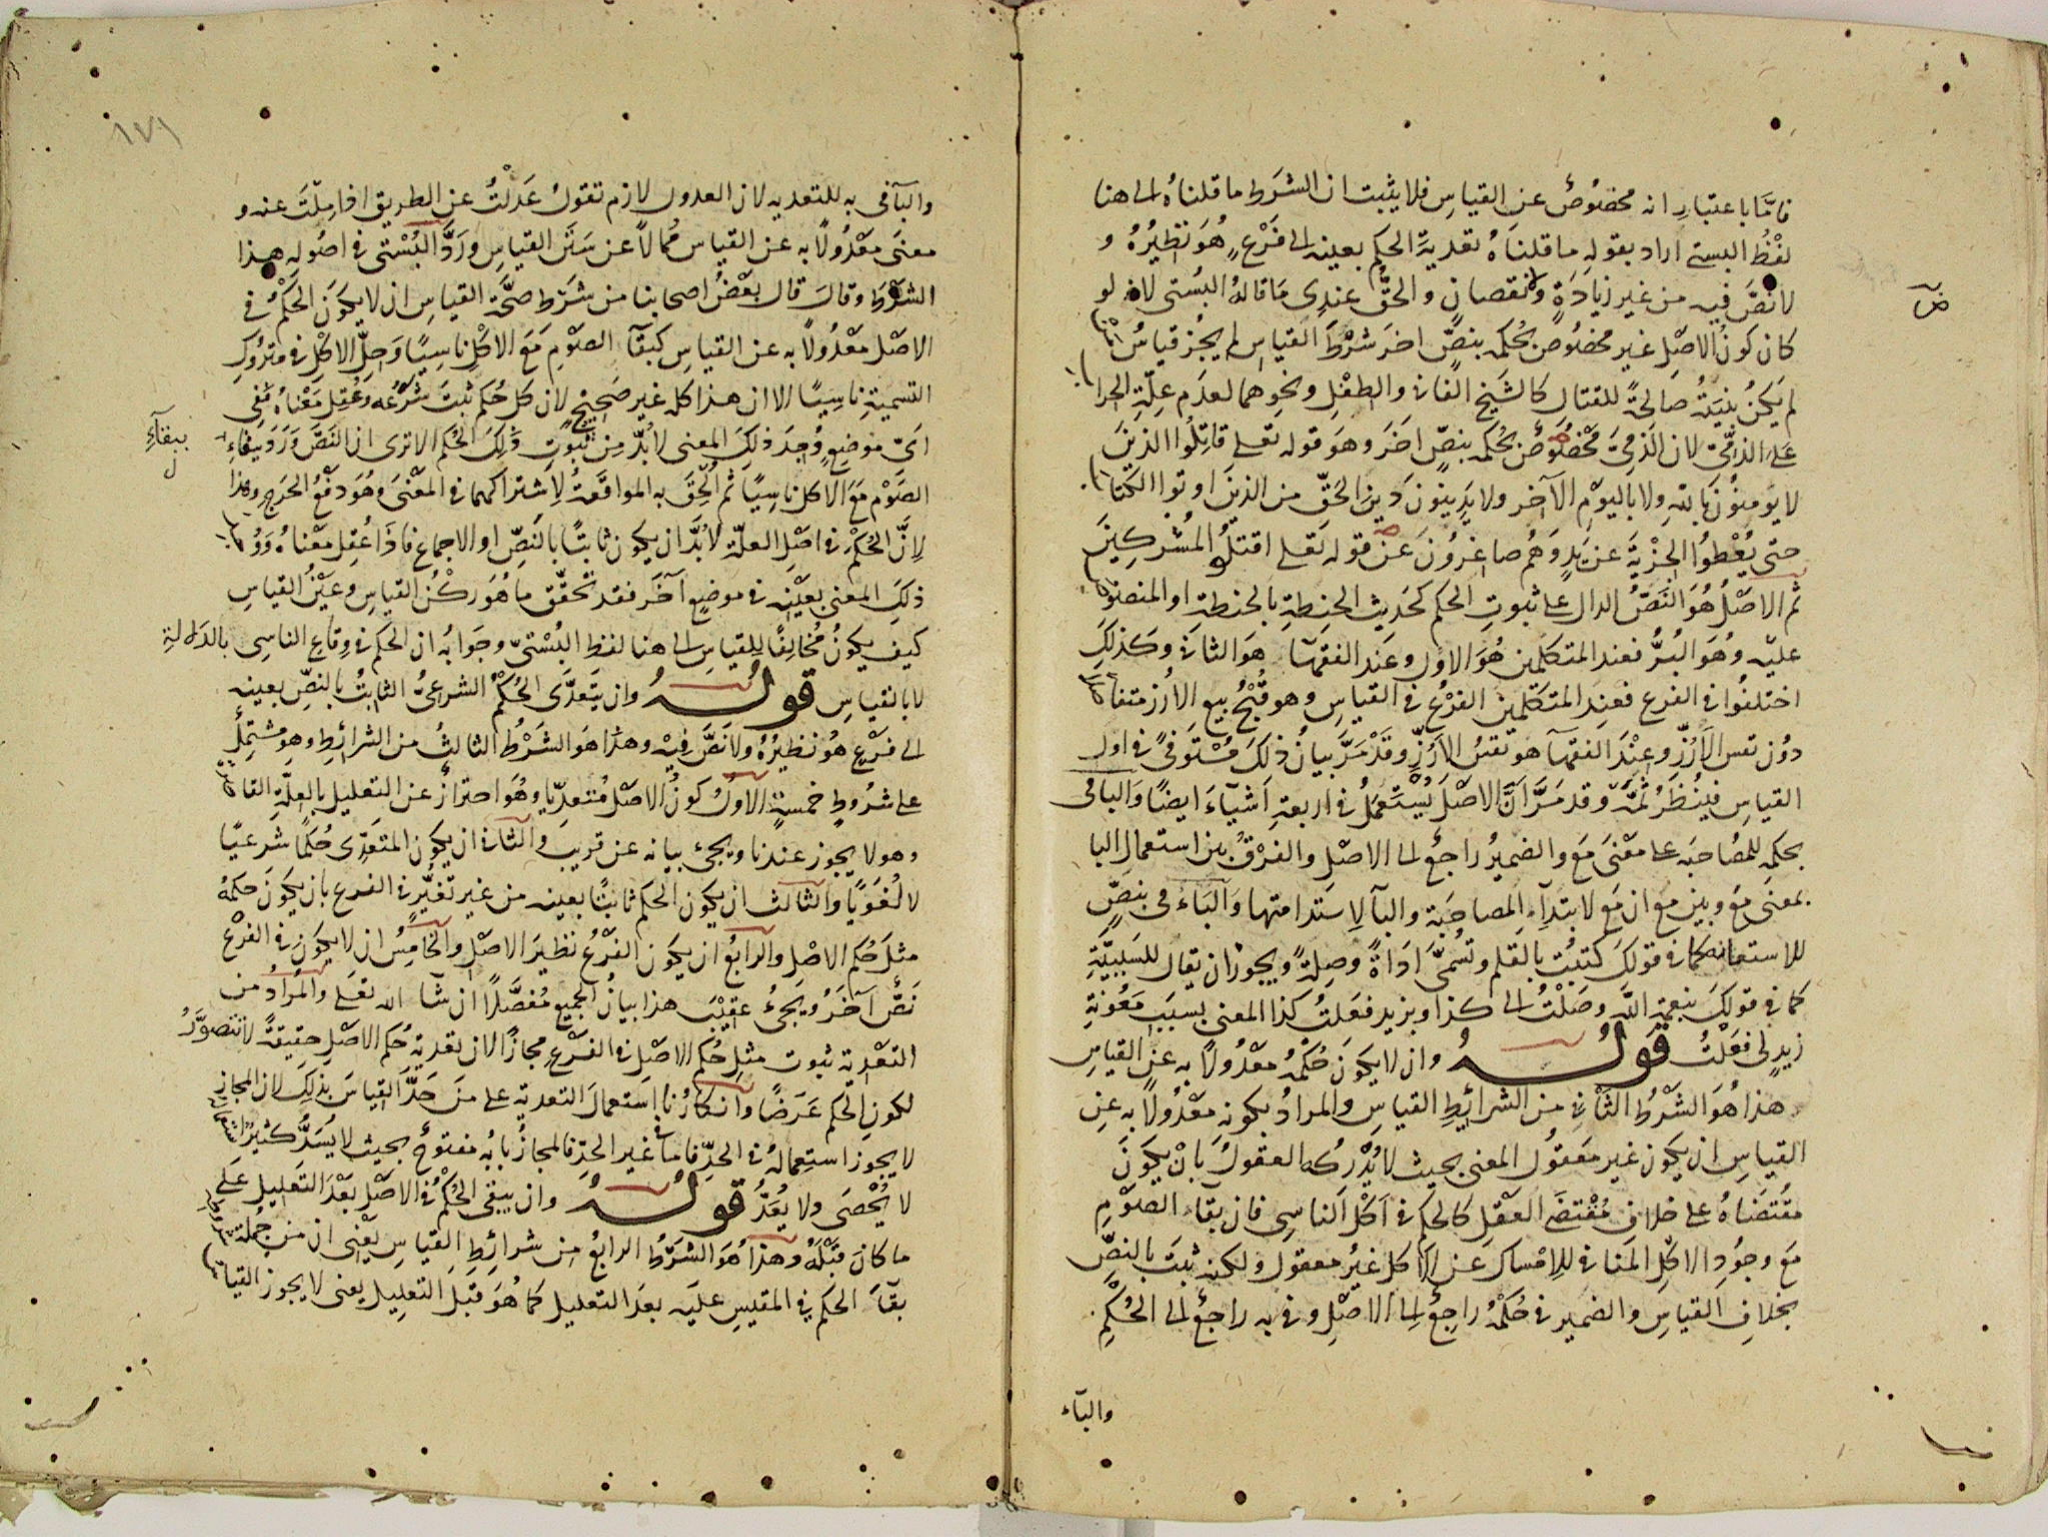 فامّا باعتبار انه مخصوص عن القياس فلا يثبت ان الشرط ما قلناه الى هنا
لفظ البستي اراد بقوله ما قلناه تعدية الحكم بعينه الى فرع هو نظيره و
لا نص فيه من غير زيادة ولا نقصان والحق عندي ما قاله البستي لانه لو
كان كون الاصل غير مخصوص بحكمه بنص اخر شرط القياس لم يجز قياس من
لم يكن بنيته صالحة للقتال كالشيخ الفاني والطفل ونحوهما لعدم علة الحراب
على الذمي لان الذمي مخصوص بحكمه بنص اخر وهو قوله تعلى قاتلوا الذين
لا يؤمنون بالله ولا باليوم الآخر ولا يدينون دين الحق من الذين اوتوا الكتاب
حتى يعطوا الجزية عن يد وهم صاغرون عن قوله تعلى اقتلوا المشركين
ثم الاصل هو النص الدال على ثبوت الحكم كحديث الحنطة بالحنطة او المنصوص
عليه وهو البر فعند المتكلمين هو الاول وعند الفقهآ هو الثاني وكذلك
اختلفوا في الفرع فعند المتكلمين الفرع في القياس وهو قبح بيع الارز متفاضلا
دون نفس الارز وعند الفقهآ هو نفس الارز وقد مر بيان ذلك مستوفى في اول
القياس فينظر ثمة وقد مر ان الاصل يستعمل في اربعة اشيآء ايضا والبا في
بحكمه للمصاحبه على معنى مع والضمير راجع الى الاصل والفرق بين استعمال البا
بمعنى مع وبين مع ان مع لابتدآء المصاحبة والبآ لاستدامتها والبآء في بنص
للاستعانه كما في قولك كتبت بالقلم وتسمى اداة وصلة ويجوز ان يقال للسببية
كما في قولك بنعمة الله وصلت الى كذا وبزيد فعلت كذا المعنى بسبب معونة
زيد لي فعلت قوله وان لا يكون حكمه معدولا به عن القياس
هذا هو الشرط الثاني من الشرائط القياس والمراد بكونه معدولا به عن
القياس ان يكون غير معقول المعنى بحيث لا يدركه العقول بان يكون
مقتضاه على خلاف مقتضى العقل كالحكم في اكل الناسي فان بقآء الصوم
مع وجود الاكل المنافي للامساك عن الاكل غير معقول ولكنه ثبت بالنص
بخلاف القياس والضمير في حكمه راجع الى الاصل وفي به راجع الى الحكم
والبآء
١٧١
والبآ في به للتعديه لان العدول لازم تقول عدلت عن الطريق اذا ملت عنه و
معنى معدولا به عن القياس ممالا عن سنن القياس ورد البستي في اصوله هذا
الشرط وقال قال بعض اصحابنا من شرط صحة القياس ان لا يكون الحكم في
الاصل معدولا به عن القياس كبقآ الصوم مع الاكل ناسيا وحل الاكل في متروك
التسمية ناسيا الا ان هذا كله غير صحيح لان كل حكم ثبت شرعه وعقل معناه ففي
اي موضع وجد ذلك المعنى لا بد من ثبوت ذلك الحكم الا ترى ان النص ورد بيقاء
ببقآء
الصوم مع الاكل ناسيا ثم الحق به المواقعة لاشتراكهما في المعنى وهو دفع الحرج وهذا
لان الحكم في اصل العلة لا بد ان يكون ثابتا بالنص او الاجماع فاذا عقل معناه ووجد
ذلك المعنى بعينه في موضع آخر فقد تحقق ما هو ركن القياس وعين القياس
كيف يكون مخالفا للقياس الى هنا لفظ البستي وجوابه ان الحكم في وقاع الناسي بالدلالة
لا بالقياس قوله وان يتعدى الحكم الشرعي الثابت بالنص بعينه
الى فرع هو نظيره ولا نص فيه وهذا هو الشرط الثالث من الشرائط وهو مشتمل
على شروط خمسة الاول كون الاصل متعديا وهو احتراز عن التعليل بالعلة القاصرة
وهو لا يجوز عندنا ويجئ بيانه عن قريب والثاني ان يكون المتعدى حكما شرعيا
لا لغويا والثالث ان يكون الحكم ثابتا بعينه من غير تغير في الفرع بان يكون حكمه
مثل حكم الاصل والرابع ان يكون الفرع نظير الاصل والخامس ان لا يكون في الفرع
نص آخر ويجئ عقيب هذا بيان الجميع مفصلا ان شآ الله تعلى والمراد من
التعدية ثبوت مثل حكم الاصل في الفرع مجازا لان تعدية حكم الاصل حقيقة لا تتصور
لكون الحكم عرضا وانكارنا استعمال التعدية على من حد القياس بذلك لان المجاز
لا يجوز استعماله في الحد فاما في غير الحد فالمجاز بابه مفتوح بحيث لا يسد كثير
لا يحصى ولا يعد قوله وان يبقى الحكم في الاصل بعد التعليل على
ما كان قبله وهذا هو الشرط الرابع من شرائط القياس يعني ان من جملة شروط
بقآ الحكم في المقيس عليه بعد التعليل كما هو قبل التعليل يعني لا يجوز القياس